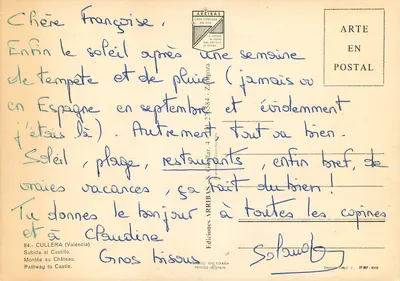 Chère Françoise,
Enfin le soleil après une semaine
de tempête et de pluie (jamais vu
en Espagne en septembre et évidemment
j'étais là). Autrement, tout va bien.
Soleil, plage, restaurants, enfin bref, de
vraies vacances, ça fait du bien!
Tu donnes le bonjour à toutes les copines
et à Claudine
Gros bisous
ARRIBAS
ARTE
EN
POSTAL
Ediciones ARRIBAS
84.- CULLERA (Valencia)
Subida al Castillo.
Montée au Château.
Pathway to Castle.